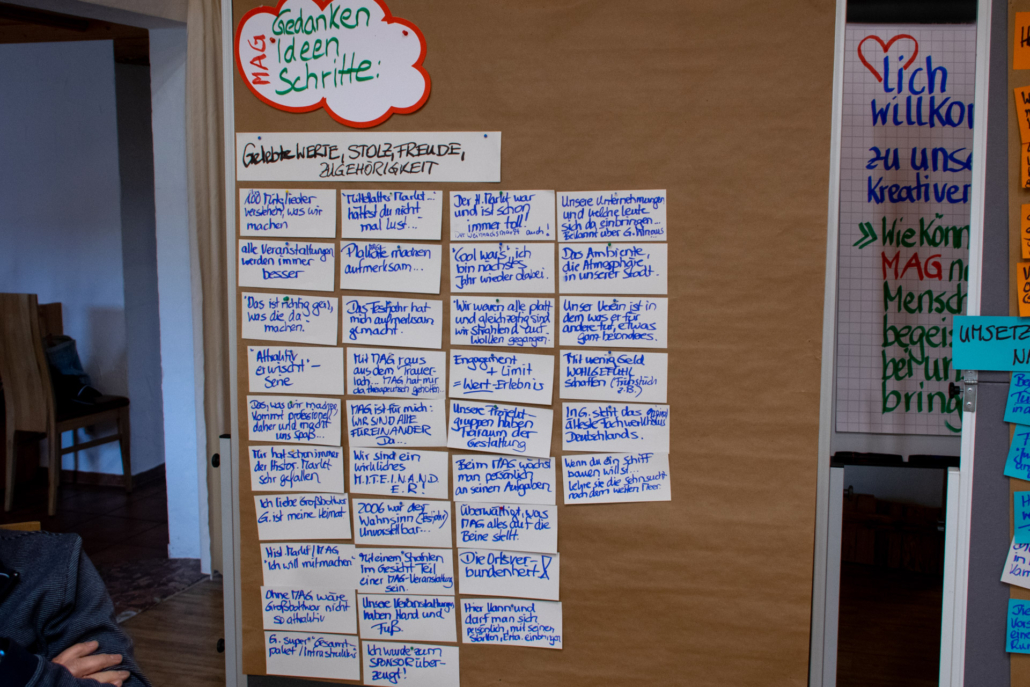 MAG
Gedanken
Ideen
Schritte:
Gelebte WERTE, STOLZ, FREUDE,
ZUGEHÖRIGKEIT
100 Mitglieder
verstehen, was wir
machen
alle Veranstaltungen
werden immer
besser
"Das ist richtig geil,
was die da
machen."
"Attraktiv
erwischt" –
Serie
Das, was wir machen,
kommt professionell
daher und macht
uns Spaß...
Mir hat schon immer
der Histor. Markt
sehr gefallen
Ich liebe Großbottwar
G. ist meine Heimat
Hist. Markt/MAG
"Ich will mitmachen"
Ohne MAG wäre
Großbottwar nicht
so attraktiv
G. super "Gesamt-
paket/Infrastruktur
"Mittelalter Markt...
hättst du nicht
mal Lust..."
Plakate machen
aufmerksam...
Das Festjahr hat
mich aufmerksam
gemacht.
Mit MAG raus
aus dem Trauer-
loch... MAG hat mir
da therapeutisch geholfen...
MAG ist für mich:
WIR SIND ALLE
FÜREINANDER
Da...
Wir sind ein
wirkliches
M.I.T.E.I.N.A.N.D.
E.R!
2006 war der
Wahnsinn (Festjahr)
Unvorstellbar...
Mit einem Strahlen
im Gesicht Teil
einer MAG-Veranstaltung
sein.
Unsere Veranstaltungen
haben Hand und
Fuß.
Ich wurde zum
SPONSOR über-
zeugt!
Der H. Markt war
und ist schon
immer toll!
Der Weihnachtsmarkt auch!
"Cool war's", ich
bin nächstes
Jahr wieder dabei.
"Wir waren alle platt
und gleichzeitig sind
wir strahlend auf
Wolken gegangen.
Engagement
+ Limit
= Wert-Erlebnis
Unsere Projekt-
gruppen haben
Freiraum der
Gestaltung
Beim MAG wächst
man persönlich
an seinen Aufgaben
Überwältigt, was
MAG alles auf die
Beine stellt.
Die Ortsver-
bundenheit
Hier kann und
darf man sich
persönlich, mit seinen
Stärken, einbringen
Unsere Unternehmungen
und welche Leute
sich da einbringen...
Bekannt über G. hinaus
Das Ambiente,
die Atmosphäre
in unserer Stadt.
Unser Verein ist in
dem was er für
andere tut, etwas
ganz besonderes.
Mit wenig Geld
WOHLGEFÜHL
schaffen (Frühstück
z.B.)
In G. steht das
älteste Fachwerkhaus
Deutschlands.
Wenn du ein Schiff
bauen willst...
Lehre sie die Sehnsucht
nach dem weiten Meer.
lich
willko
zu uns
Kreativen
Wie könn
MAG n
Mensch
begei
bei un
bring
UMSETZ